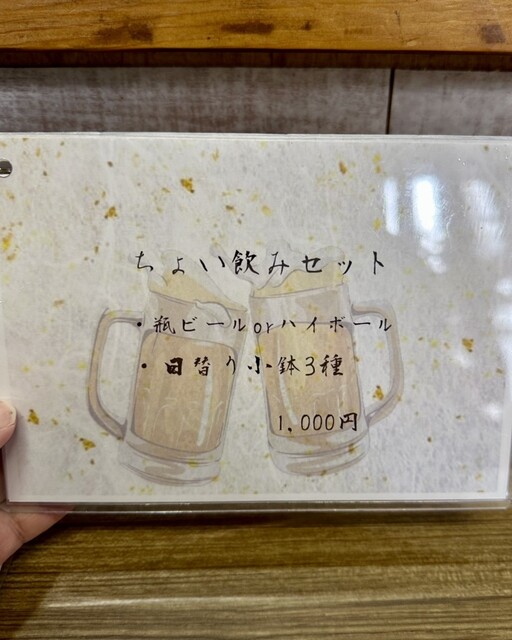 ちょい飲みセット
・瓶ビールorハイボール
・日替り小鉢3種
1,000円